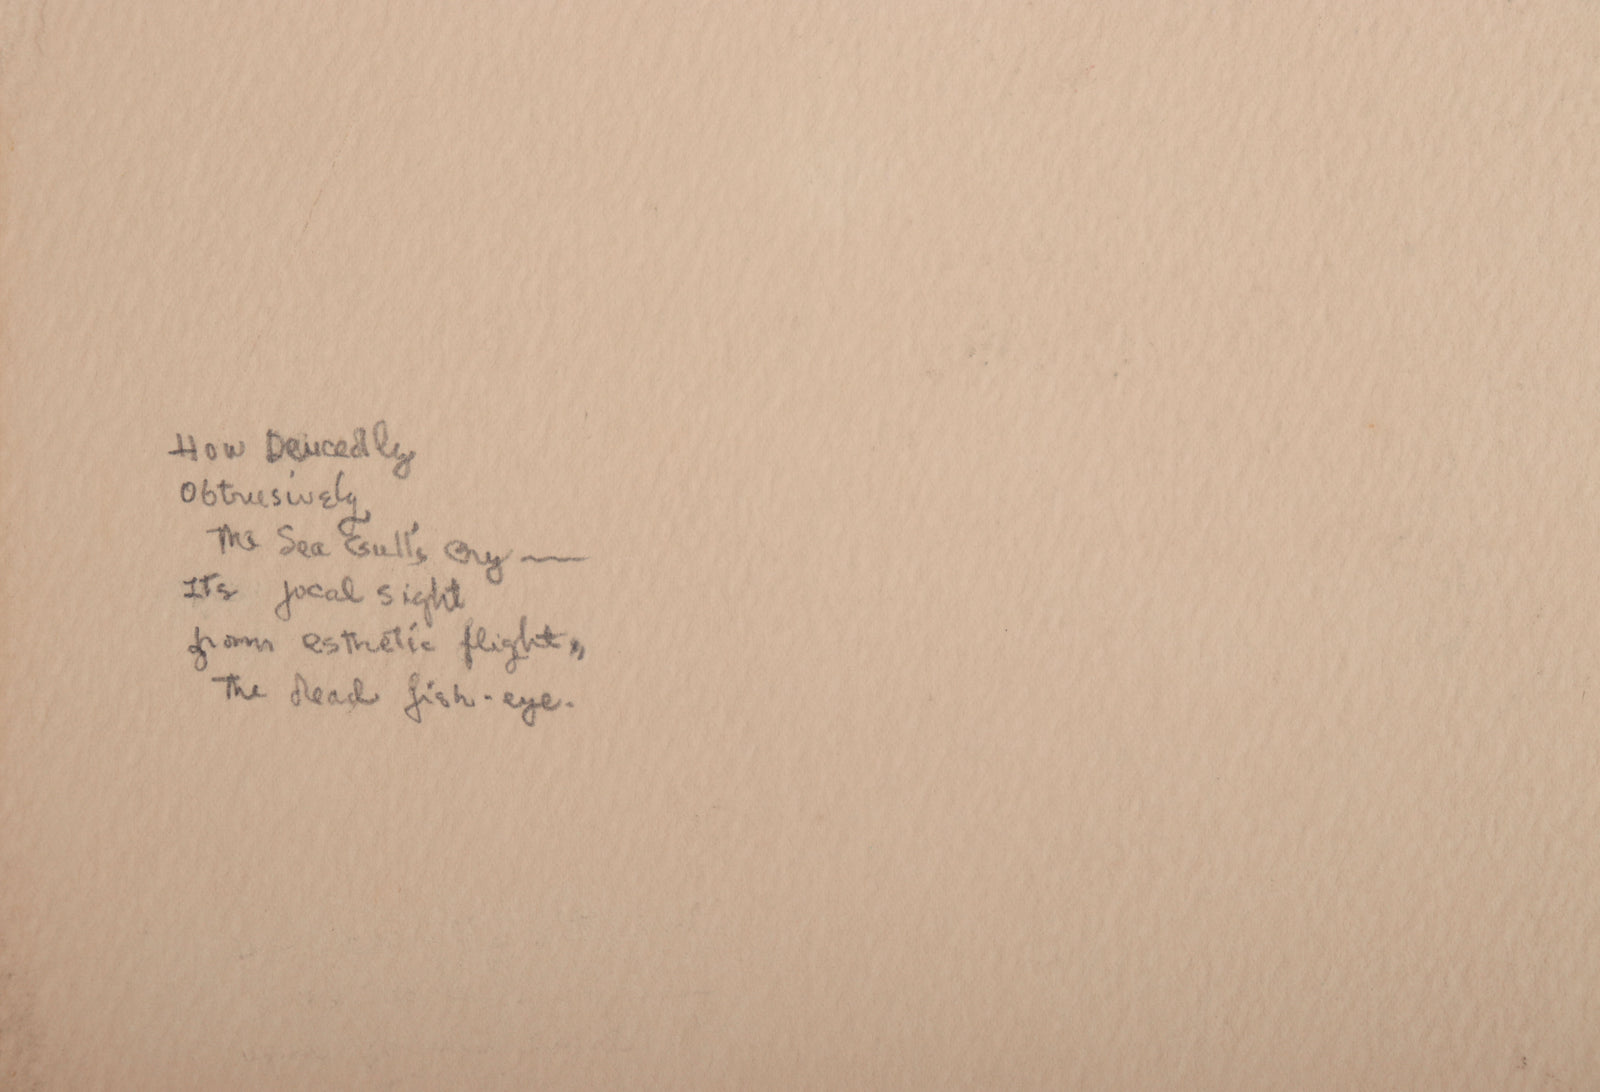 How Deucedly
Obtrusively
The Sea Gull's Cry —
Its focal sight
from esthetic flight,
The dead fish-eye.